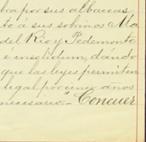 por sus albaceas
to á sus sobrinos
del Rio y Pedemonte
é insolidum, dándo
que las leyes permiten
legal por cinco años
necesario.- Concuer